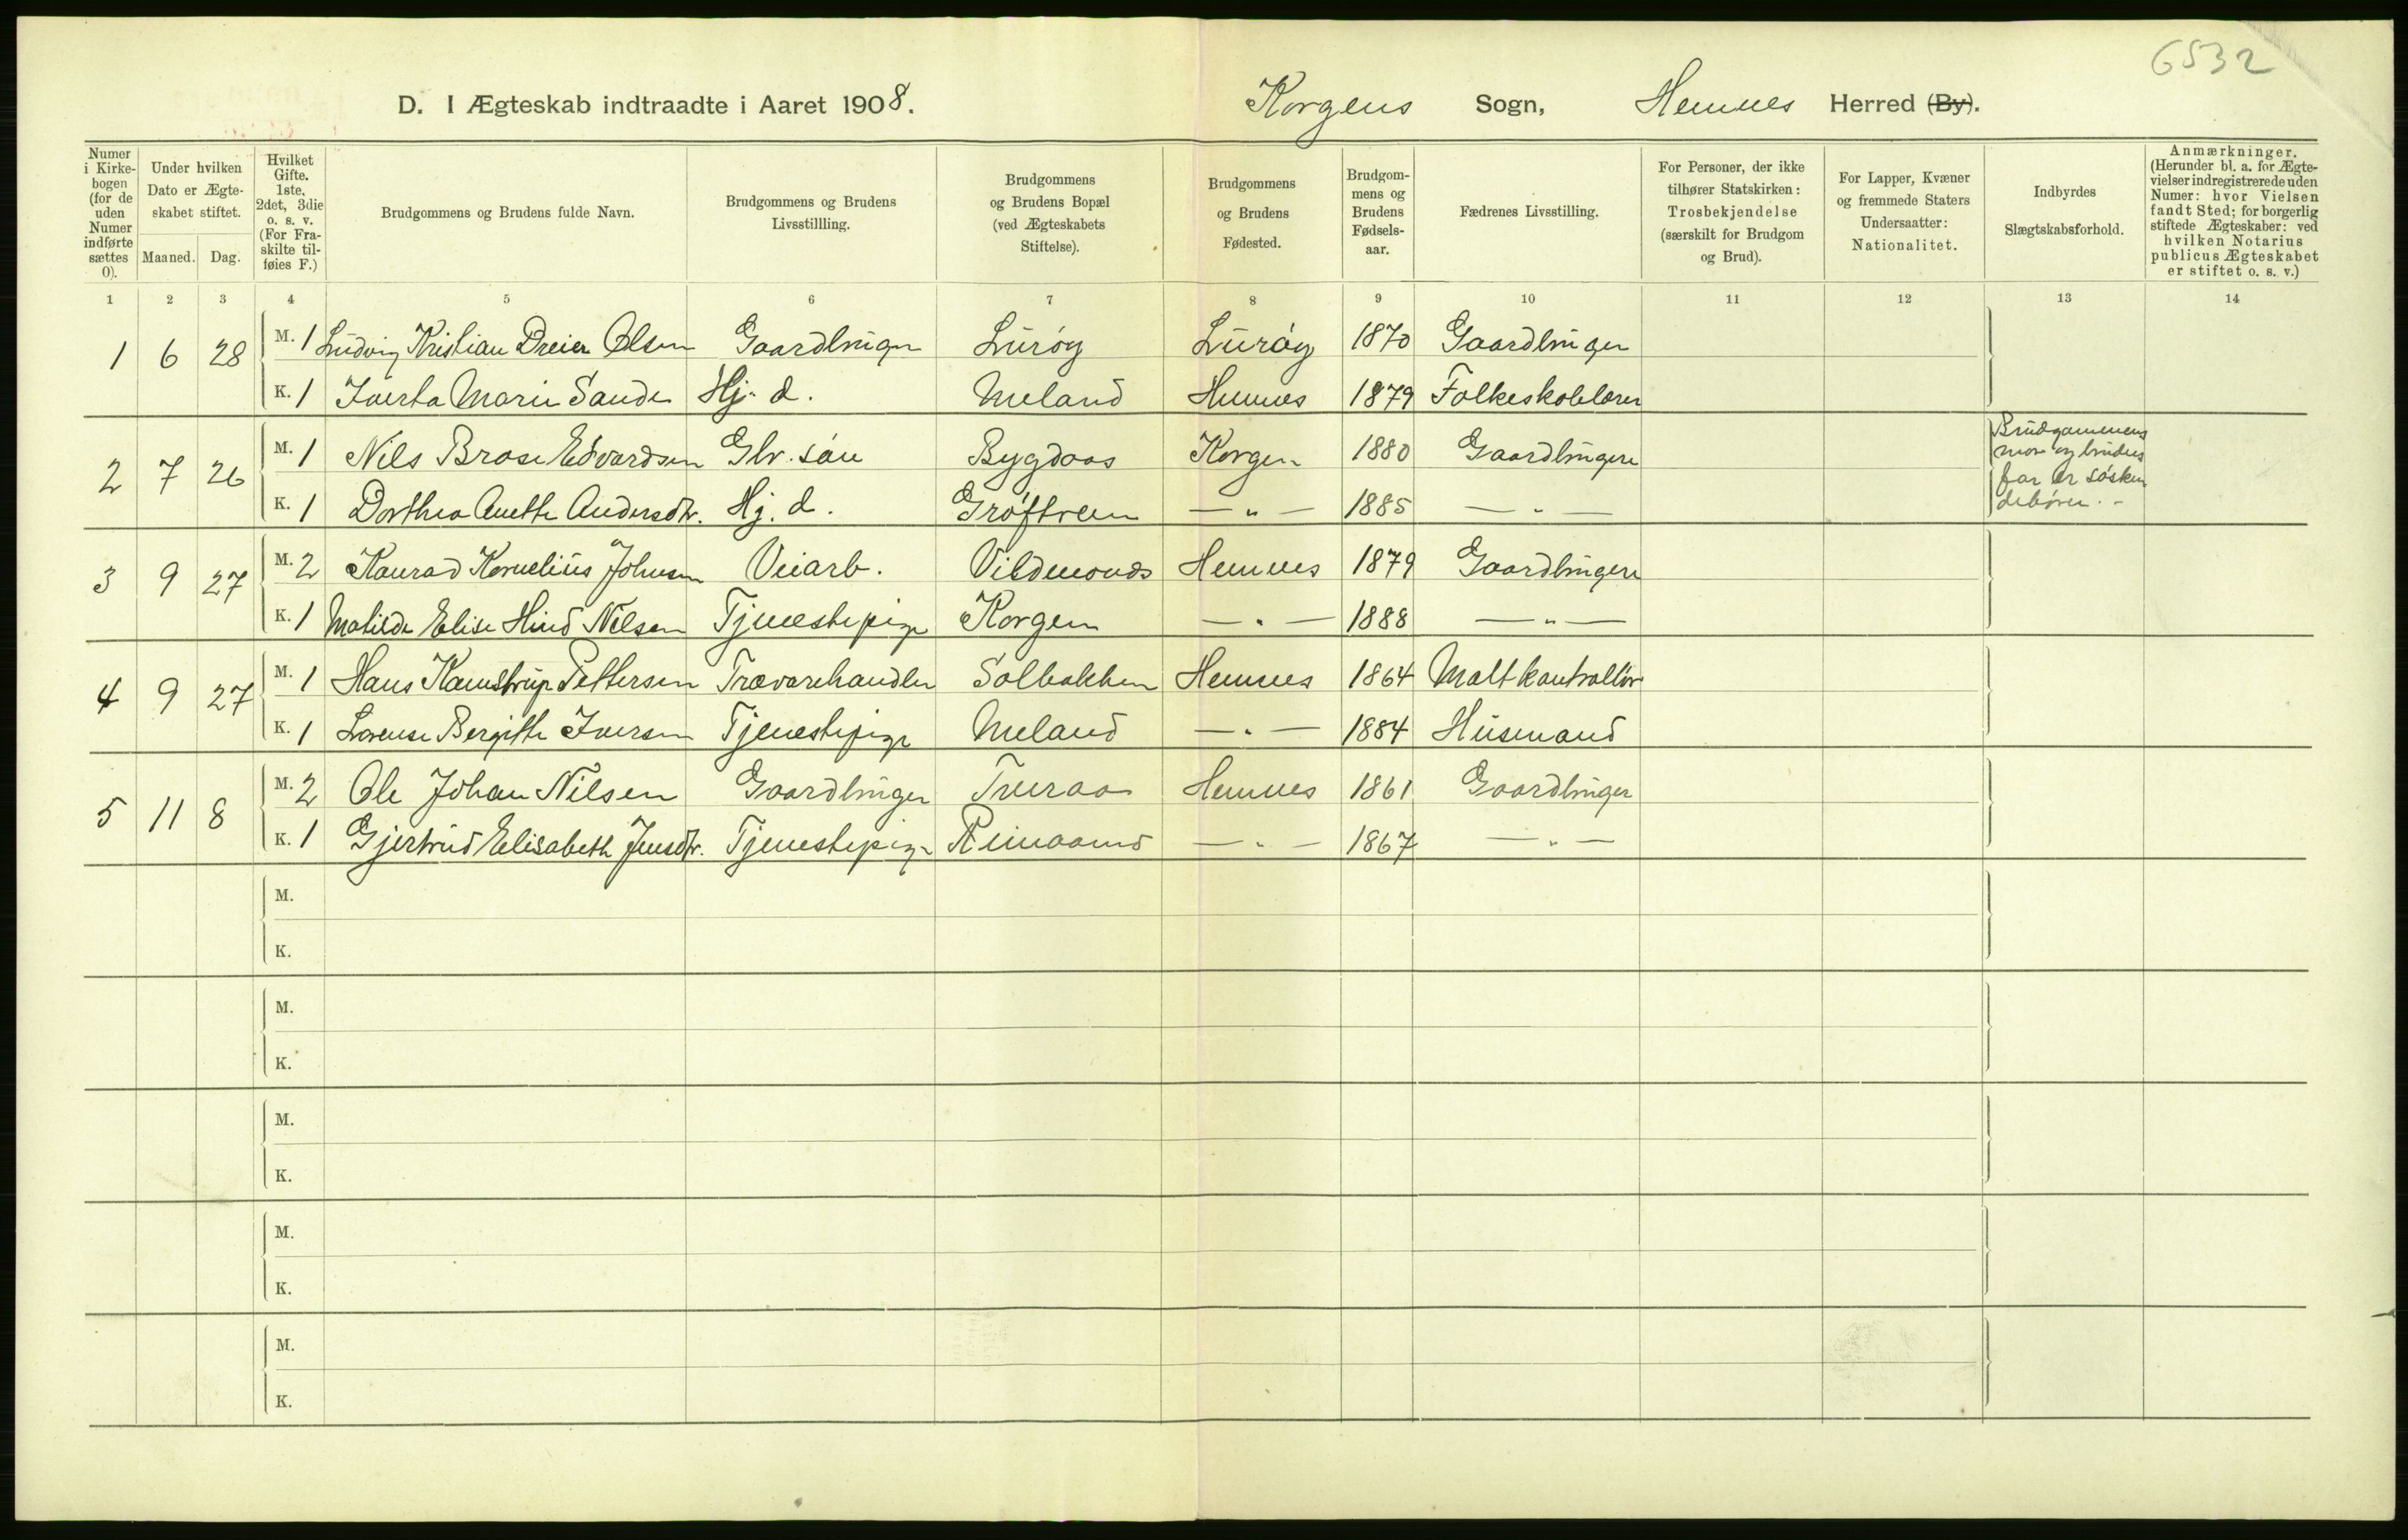 6532
D. I Ægteskab indtraadte i Aaret 1908. Korgens Sogn, Hemnes Herred (By).
Numer i Kirkebogen (for de uden Numer indførte sættes 0).
Under hvilken Dato er Ægteskabet stiftet.
Maaned. Dag.
Hvilket Gifte. 1ste, 2det, 3die o. s. v. (For Fraskilte tilføies F.)
Brudgommens og Brudens fulde Navn.
Brudgommens og Brudens Livsstillling.
Brudgommens og Brudens Bopæl (ved Ægteskabets Stiftelse).
Brudgommens og Brudens Fødested.
Brudgommens og Brudens Fødselsaar.
Fædrenes Livsstilling.
For Personer, der ikke tilhører Statskirken: Trosbekjendelse (særskilt for Brudgom og Brud).
For Lapper, Kvæner og fremmede Staters Undersaatter: Nationalitet.
Indbyrdes Slægtskabsforhold.
Anmærkninger. (Herunder bl. a. for Ægtevielser indregistrerede uden Numer: hvor Vielsen fandt Sted; for borgerlig stiftede Ægteskaber: ved hvilken Notarius publicus Ægteskabet er stiftet o. s. v.)
1 2 3 4 5 6 7 8 9 10 11 12 13 14
1 6 28 M. 1 Ludvig Kristian Dreier Olsen Gaardbruger Lurøy Lurøy 1870 Gaardbruger
K. 1 Iverta Marie Sande Hj. d. Meland Hemnes 1879 Folkeskolelærer
2 7 26 M. 1 Nils Brose Edvardsen Gbr. søn Bygdaas Korgen 1880 Gaardbrugere
K. 1 Dorthea Anette Andersdtr. Hj. d. Grøftrem — " — 1885 — " —
Brudgommens
mor og brudens
far er søsken
debørn. -
3 9 27 M. 2 Konrad Kornelius Johnsen Veiarb. Vildmones Hemnes 1879 Gaardbrugere
K. 1 Matilde Elise Hind Nilsen Tjenestepige Korgen — " — 1888 — " —
4 9 27 M. 1 Hans Kamstrup Pettersen Trævarehandler Solbakken Hemnes 1864 Maltkontrollør
K. 1 Lorense Bergitte Iversen Tjenestepige Meland — " — 1884 Husmand
5 11 8 M. 2 Ole Johan Nilsen Gaardbruger Hemnes 1861 Gaardbruger
K. 1 Gjertrud Elisabeth Jensdtr. Tjenestepige — " — 1867 — " —
M.
K.
M.
K.
M.
K.
M.
K.
M.
K.